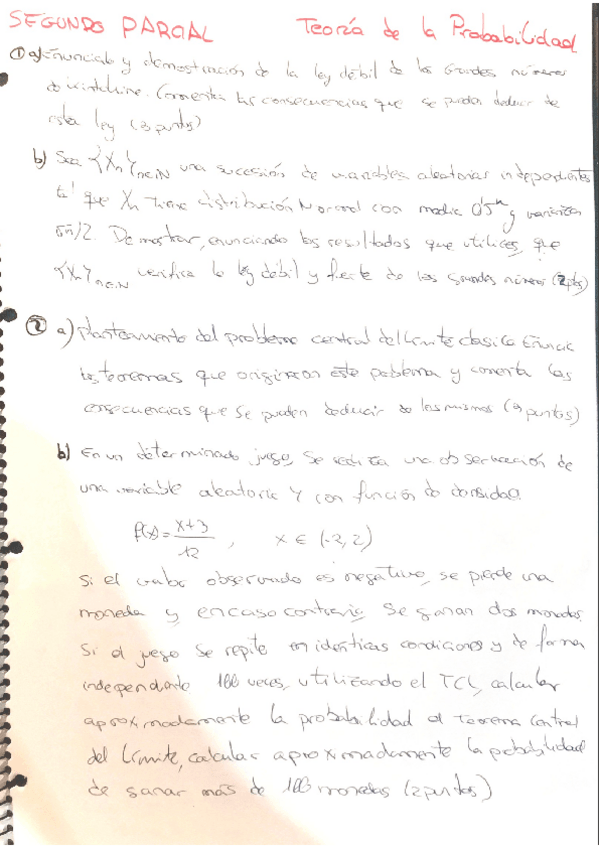 SEGUNDO PARCIAL Teoría de la Probabilidad
① a) Enunciado y demostración de la ley débil de los Grandes números
de Kintchine. Comenta las consecuencias que se pueden deducir de
esta ley (3 puntos)
b) Sea {Xn}n∈N una sucesión de variables aleatorias independientes
tal que Xn tiene distribución Normal con media 0'5ⁿ y varianza
√n/2. Demostrar, enunciando los resultados que utilices, que
{Xn}n∈N verifica la ley débil y fuerte de los grandes números (2 ptos)
② a) Planteamiento del problema central del límite clasico Enuncia
los teoremas que originaron este poblema y comenta las
consecuencias que se pueden deducir de los mismos (3 puntos)
b) En un determinado juego, se realiza una observación de
una variable aleatoria Y con función de densidad.
f(x) = x+3/12 , x ∈ (-2, 2)
Si el valor observado es negativo, se pierde una
moneda y en caso contrario se ganan dos monedas.
Si el juego se repite en identicas condiciones y de forma
independiente 100 veces, utilizando el TCL, calcular
aproximadamente la probabilidad el Teorema Central
del Límite, calcular aproximadamente la probabilidad
de ganar más de 100 monedas (2 puntos)